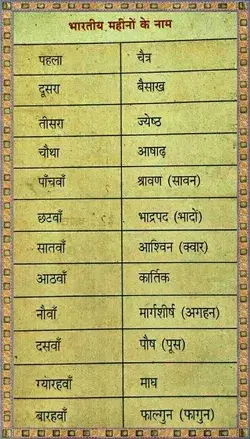 भारतीय महीनों के नाम
पहला चैत्र
दूसरा बैसाख
तीसरा ज्येष्ठ
चौथा आषाढ़
पाँचवाँ श्रावण (सावन)
छटवाँ भाद्रपद (भादों)
सातवाँ आश्विन (क्वार)
आठवाँ कार्तिक
नौवाँ मार्गशीर्ष (अगहन)
दसवाँ पौष (पूस)
ग्यारहवाँ माघ
बारहवाँ फाल्गुन (फागुन)